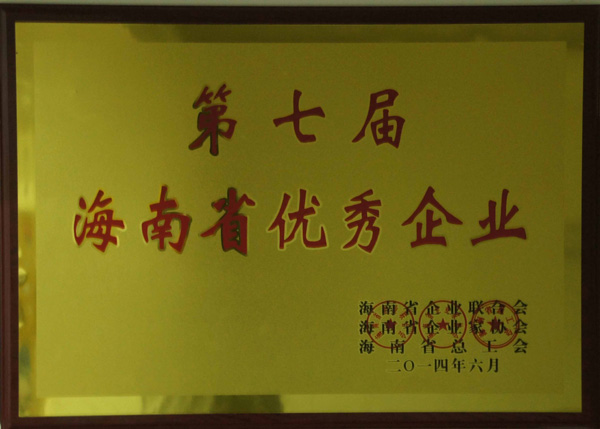 第七届
海南省优秀企业
海南省企业联合会
海南省企业家协会
海南省总工会
二〇一四年六月